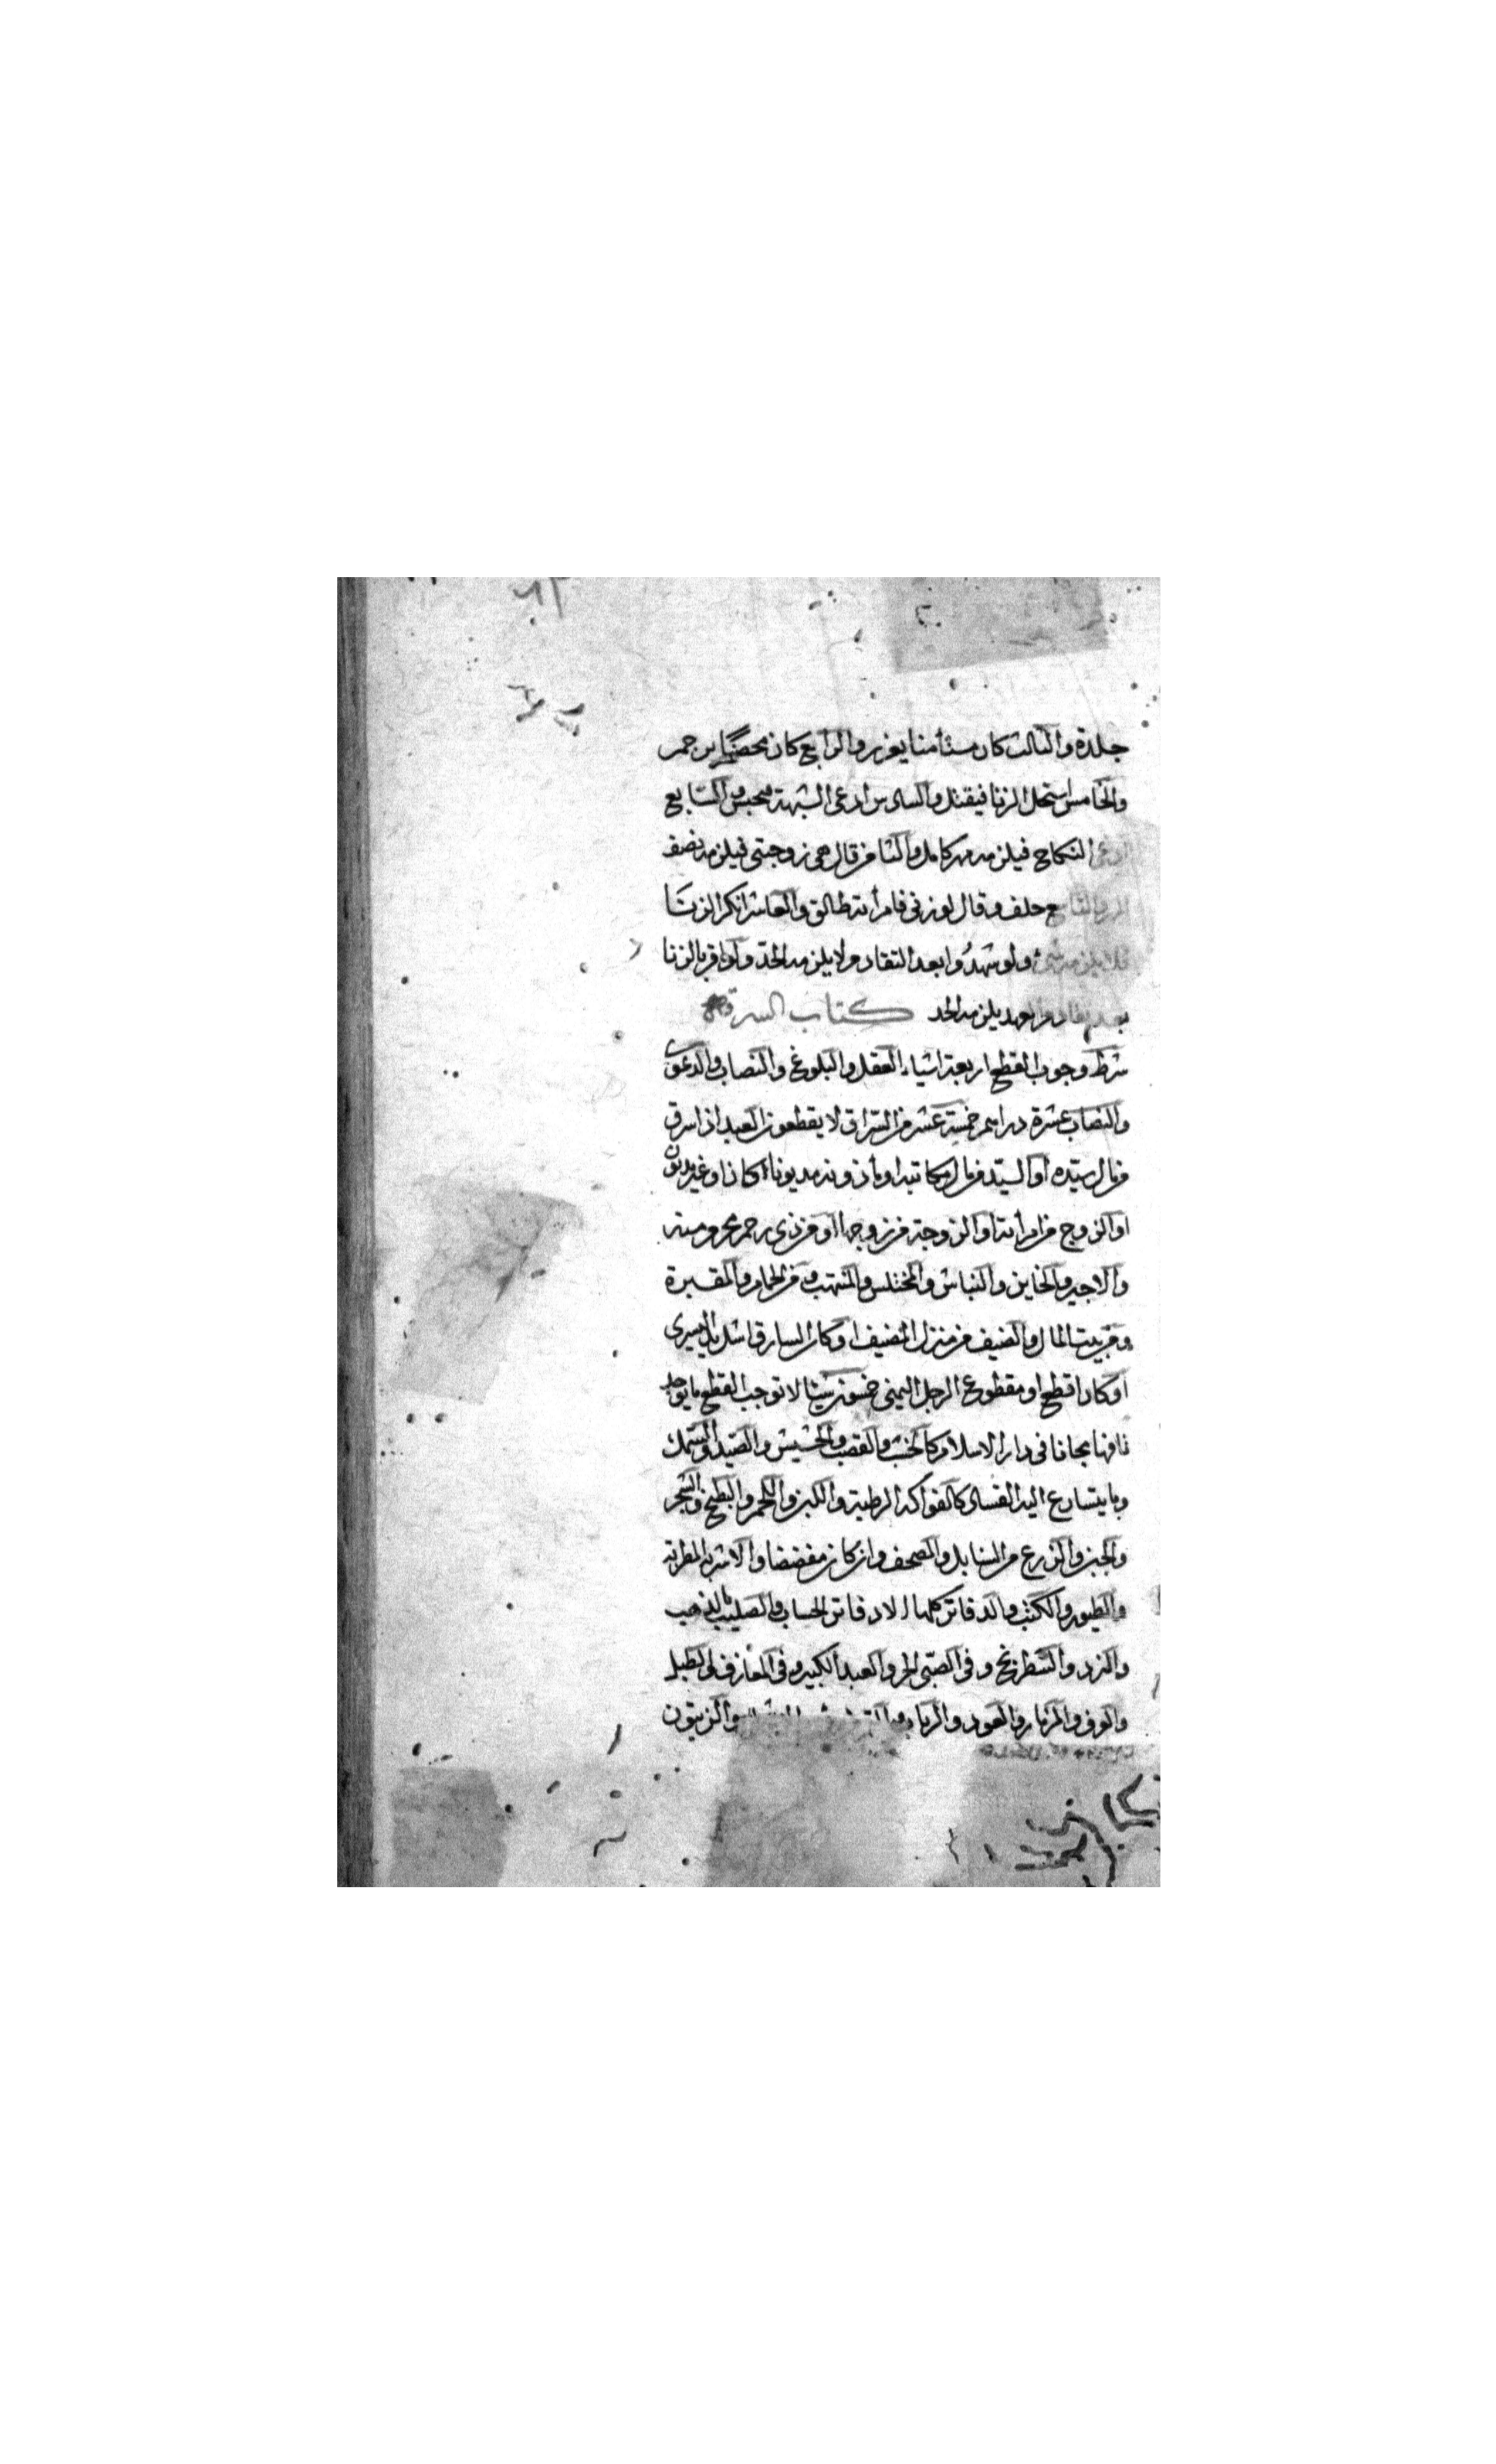 جلدة والثالث كان مستأمنا يعزر والرابع كان محصنا يرجم
والخامس استحل الزنا فيقتل والسادس ادعى الشبهة فيحبس والسابع
ادعى النكاح فيلزمه مهر كامل والثامن قال هي زوجتي فيلزمه نصف
المهر والتاسع حلف وقال لو زنى فامرأته طالق والعاشر انكر الزنا
فلا يلزمه شئ ولو شهدوا بعد التقادم لا يلزمه الحد ولو اقر بالزنا
بعد تقادم العهد يلزمه الحد كتاب السرقة
شرط وجوب القطع اربعة اشياء العقل والبلوغ والنصاب والدعوى
والنصاب عشرة دراهم خمسة عشر من السراق لا يقطعون العبد اذا سرق
من مال سيده او السيد من مال مكاتبه او مأذونه مديونا كان او غير مديون
او الزوج من امرأته او الزوجة من زوجها او من ذي رحم محرم منه
والاجير والخاين والنباش والمختلس والمنتهب ومن الحمام والمقبرة
ومن بيت المال والضيف من منزل المضيف او كان السارق اشل يد اليسرى
او كان اقطع او مقطوع الرجل اليمنى خمسون شيئا لا توجب القطع ما يوجد
تافها مجانا في دار الاسلام كالخشب والقصب والحشيش والصيد والسمك
وما يتسارع اليه الفساد كالفواكه الرطبة واللبن واللحم والبطيخ والشجر
والخبز والزرع من السنابل والمصحف وان كان مفضضا والاشربة المطربة
والطيور والكتب والدفاتر كلها الا دفاتر الحساب والصليب الذهب
والنرد والشطرنج وفي الصبي الحر والعبد الكبير وفي المعازف الطبل
والدف والمزمار والعود والزيتون